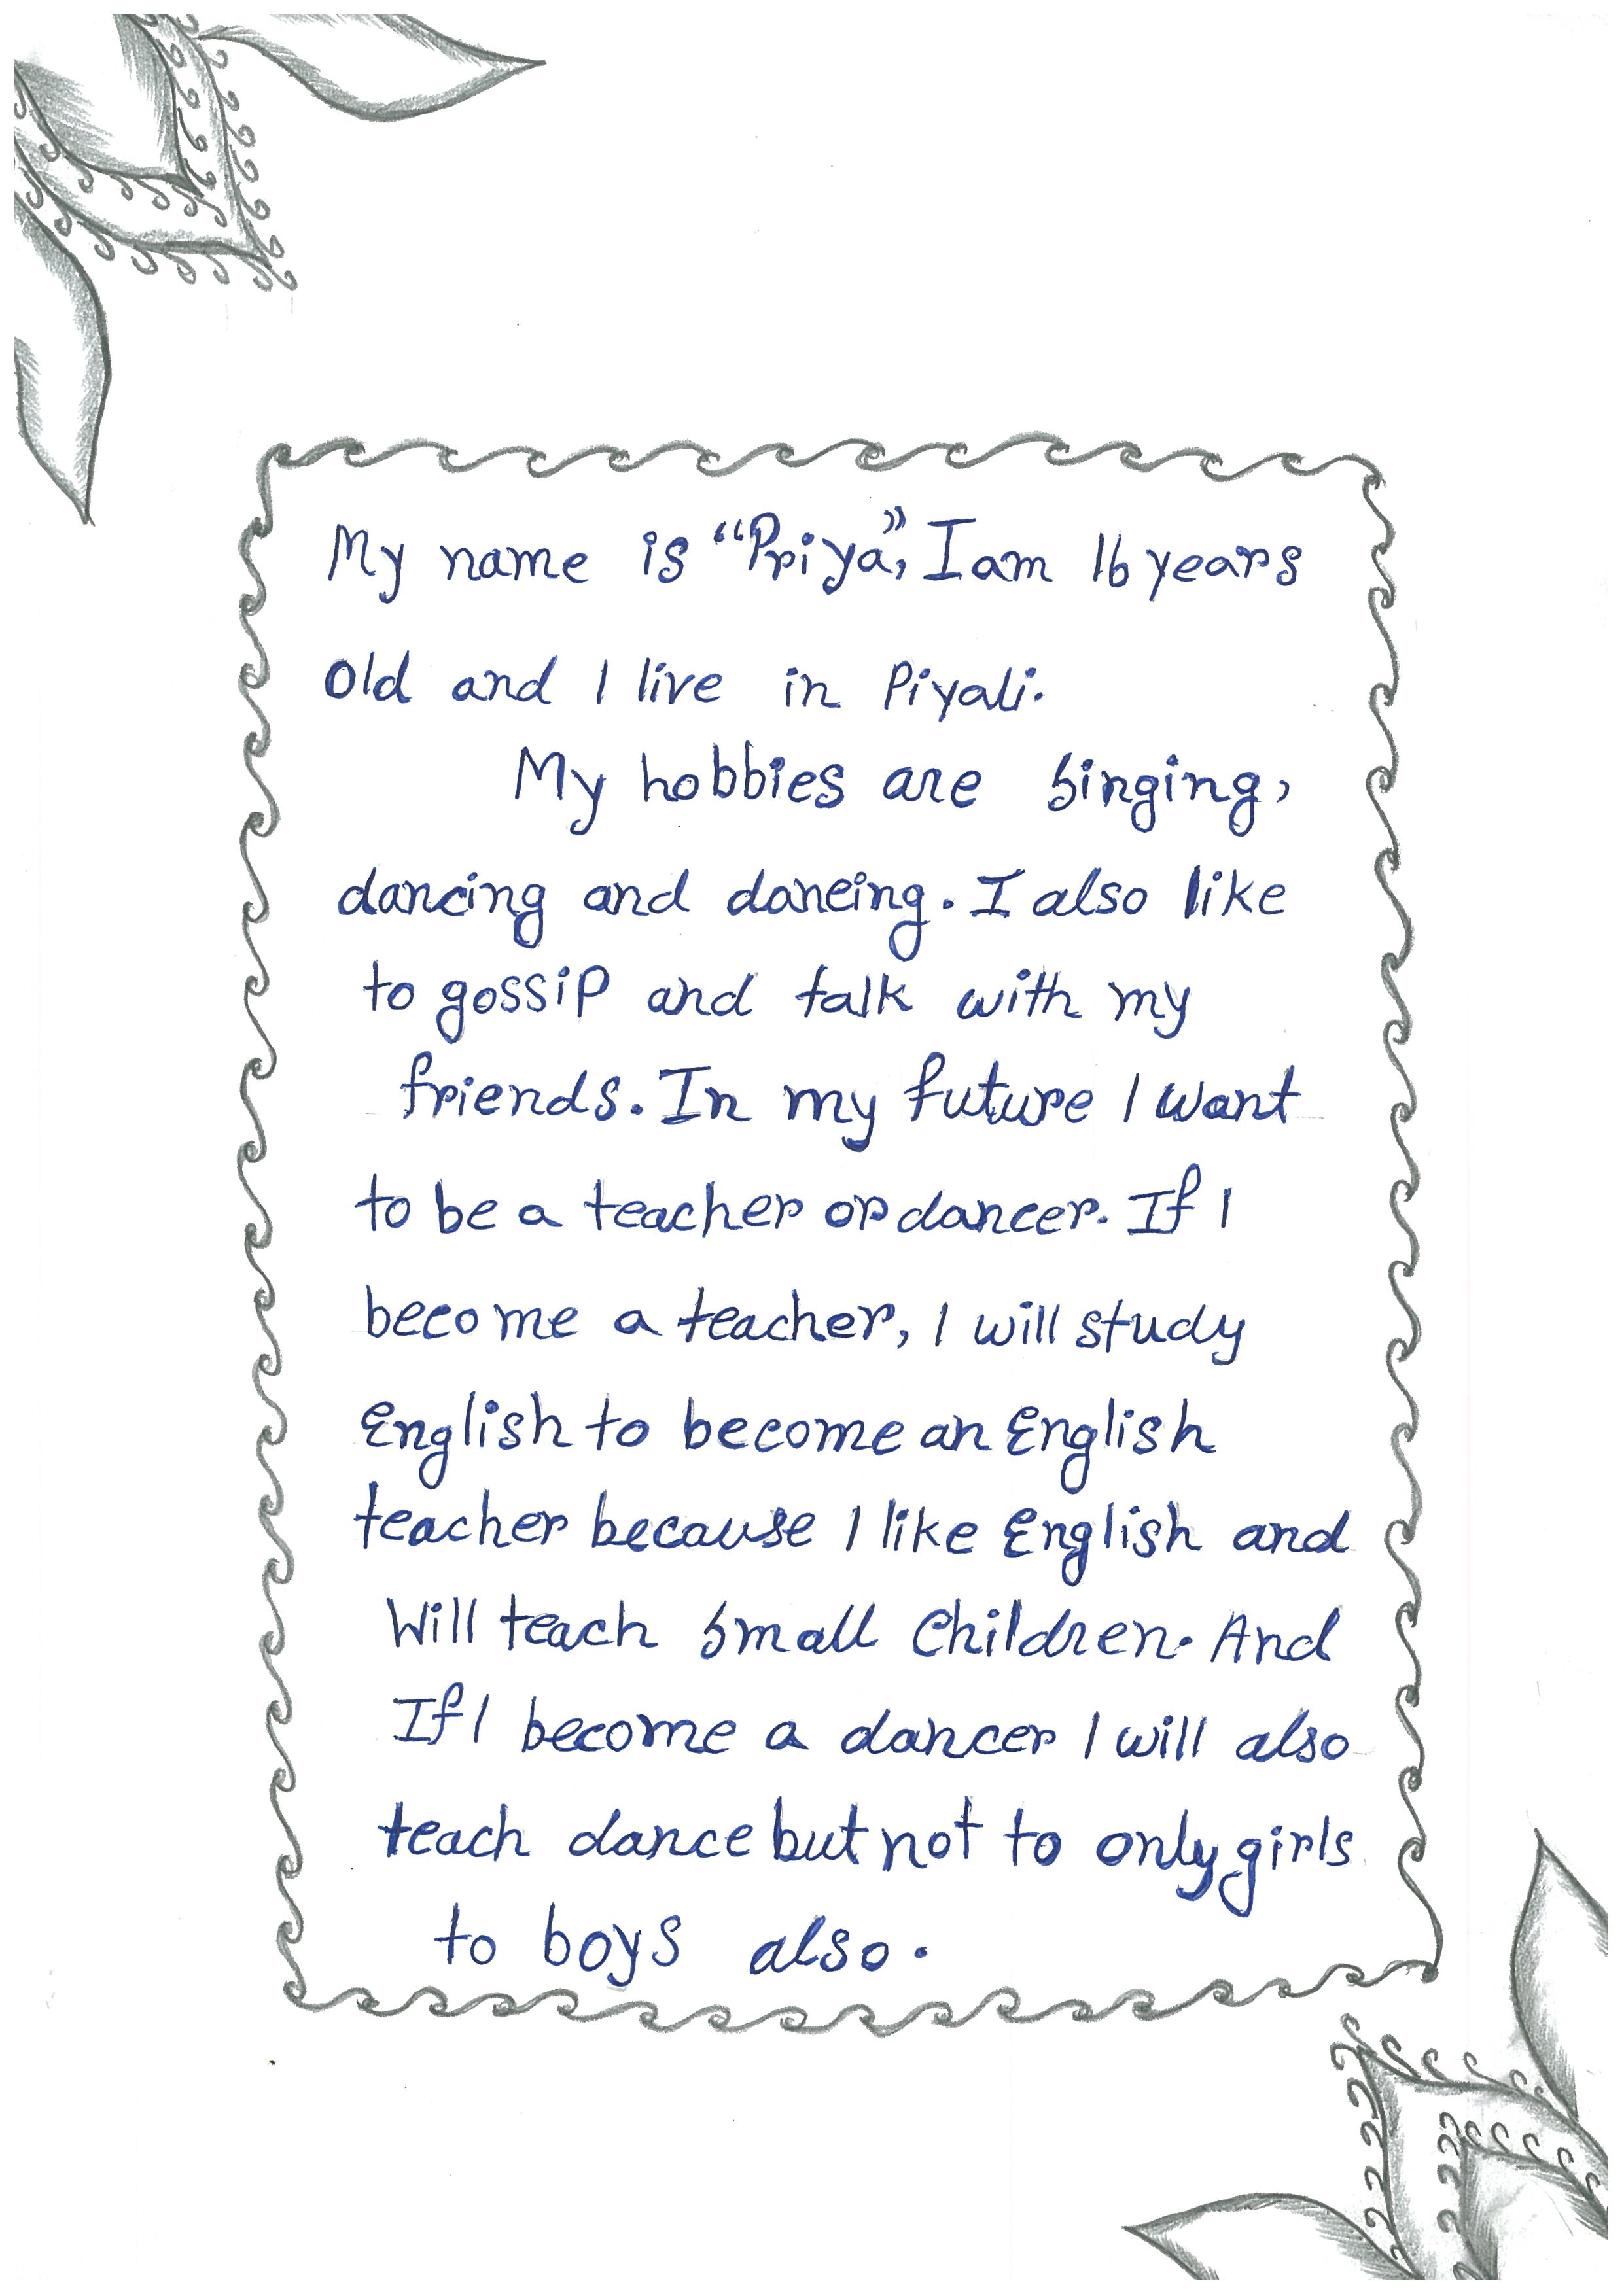 My name is “Priya”, I am 16 years
Old and I live in Piyali.
My hobbies are singing,
dancing and dancing. I also like
to gossip and talk with my
friends. In my future I want
to be a teacher or dancer. If I
become a teacher, I will study
English to become an English
teacher because I like English and
Will teach small Children. And
If I become a dancer I will also
teach dance but not to only girls
to boys also.